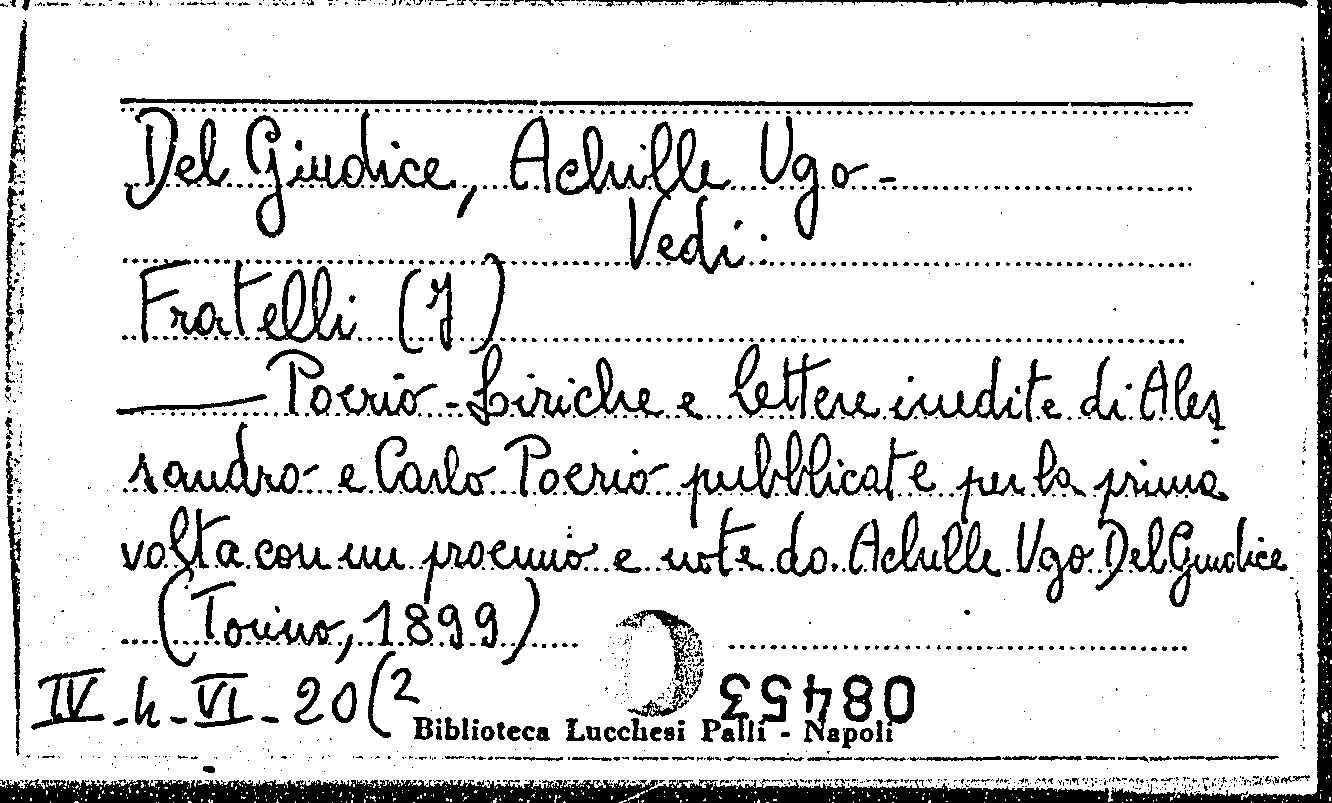 Del Giudice, Achille Ugo -
Vedi:
Fratelli (I)
—— Poerio - Liriche e lettere inedite di Ales
sandro e Carlo Poerio pubblicate per la prima
volta con un proemio e note da Achille Ugo Del Giudice
(Torino, 1899)
IV - h - VI - 20 (2
08453
Biblioteca Lucchesi Palli - Napoli